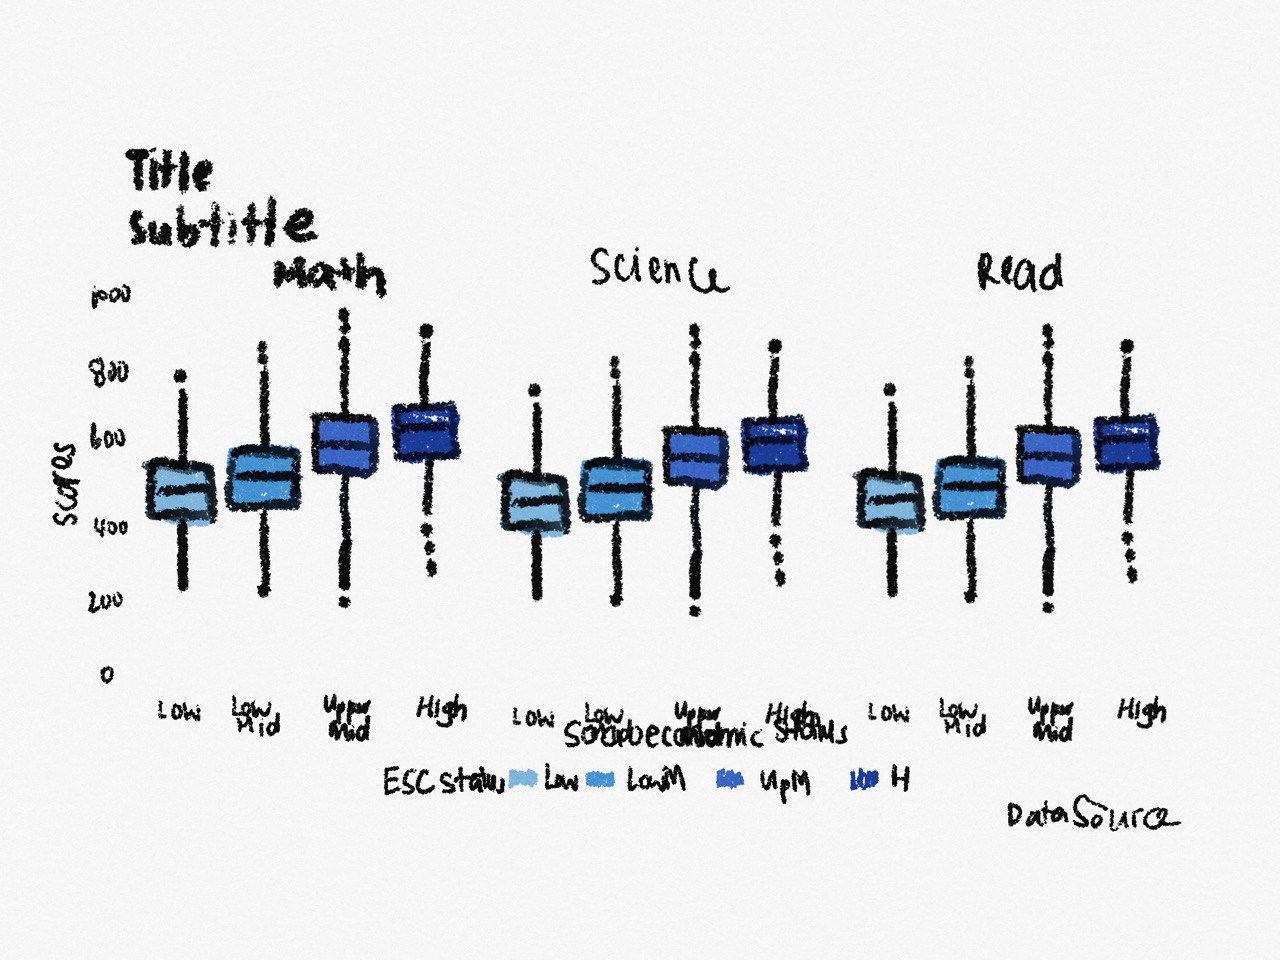 Title
Subtitle
Math Science Read
1000
800
600
400
200
0
scores
Low Low Mid Upper Mid High Low Low Mid Upper Mid High Low Low Mid Upper Mid High
Socioeconomic status
ESC status Low LowM UpM H
Data Source